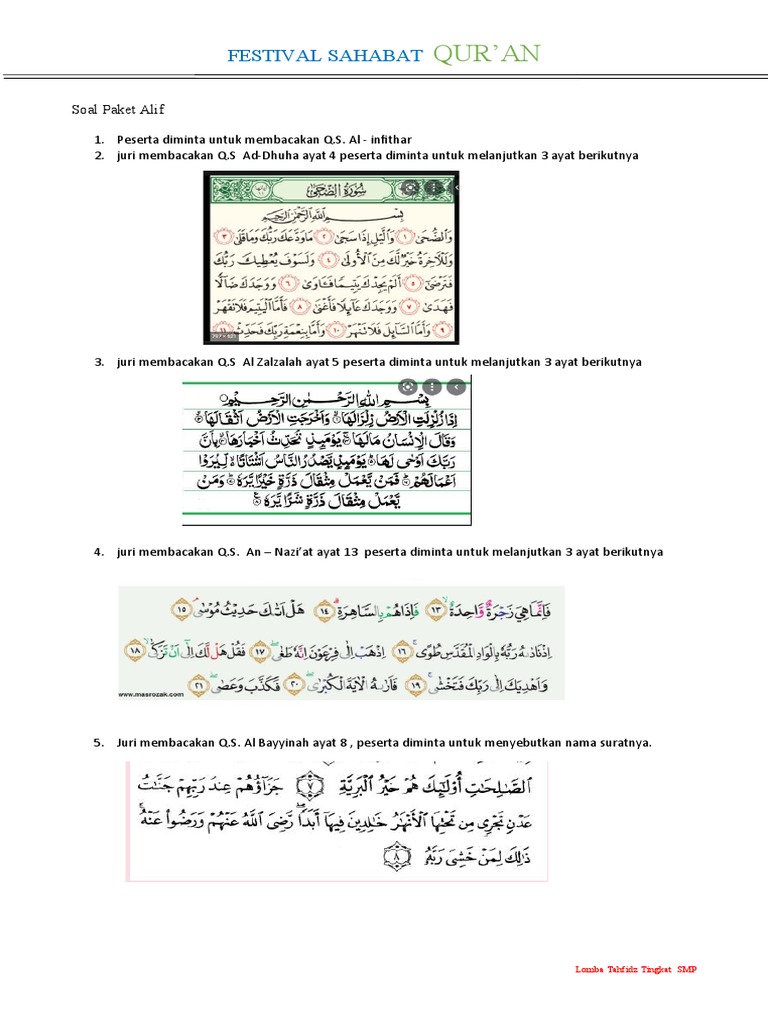 FESTIVAL SAHABAT QUR’AN
Soal Paket Alif
1. Peserta diminta untuk membacakan Q.S. Al - infithar
2. juri membacakan Q.S Ad-Dhuha ayat 4 peserta diminta untuk melanjutkan 3 ayat berikutnya
سُورَةُ الضُّحَىٰ
بِسْمِ اللَّهِ الرَّحْمَٰنِ الرَّحِيمِ
وَالضُّحَىٰ ١ وَاللَّيْلِ إِذَا سَجَىٰ ٢ مَا وَدَّعَكَ رَبُّكَ وَمَا قَلَىٰ ٣
وَلَلْآخِرَةُ خَيْرٌ لَّكَ مِنَ الْأُولَىٰ ٤ وَلَسَوْفَ يُعْطِيكَ رَبُّكَ
فَتَرْضَىٰ ٥ أَلَمْ يَجِدْكَ يَتِيمًا فَآوَىٰ ٦ وَوَجَدَكَ ضَالًّا
فَهَدَىٰ ٧ وَوَجَدَكَ عَائِلًا فَأَغْنَىٰ ٨ فَأَمَّا الْيَتِيمَ فَلَا تَقْهَرْ
٩ وَأَمَّا السَّائِلَ فَلَا تَنْهَرْ ١٠ وَأَمَّا بِنِعْمَةِ رَبِّكَ فَحَدِّثْ ١١
3. juri membacakan Q.S Al Zalzalah ayat 5 peserta diminta untuk melanjutkan 3 ayat berikutnya
بِسْمِ اللَّهِ الرَّحْمَٰنِ الرَّحِيمِ
إِذَا زُلْزِلَتِ الْأَرْضُ زِلْزَالَهَا ١ وَأَخْرَجَتِ الْأَرْضُ أَثْقَالَهَا ٢
وَقَالَ الْإِنْسَانُ مَا لَهَا ٣ يَوْمَئِذٍ تُحَدِّثُ أَخْبَارَهَا ٤ بِأَنَّ
رَبَّكَ أَوْحَىٰ لَهَا ٥ يَوْمَئِذٍ يَصْدُرُ النَّاسُ أَشْتَاتًا لِيُرَوْا
أَعْمَالَهُمْ ٦ فَمَنْ يَعْمَلْ مِثْقَالَ ذَرَّةٍ خَيْرًا يَرَهُ ٧ وَمَنْ
يَعْمَلْ مِثْقَالَ ذَرَّةٍ شَرًّا يَرَهُ ٨
4. juri membacakan Q.S. An – Nazi’at ayat 13 peserta diminta untuk melanjutkan 3 ayat berikutnya
فَإِنَّمَا هِيَ زَجْرَةٌ وَّاحِدَةٌ ١٣ فَإِذَا هُمْ بِالسَّاهِرَةِ ١٤ هَلْ أَتَاكَ حَدِيثُ مُوسَىٰ ١٥
إِذْ نَادَاهُ رَبُّهُ بِالْوَادِ الْمُقَدَّسِ طُوًى ١٦ اِذْهَبْ إِلَىٰ فِرْعَوْنَ إِنَّهُ طَغَىٰ ١٧ فَقُلْ هَلْ لَّكَ إِلَىٰ أَنْ تَزَكَّىٰ ١٨
وَأَهْدِيَكَ إِلَىٰ رَبِّكَ فَتَخْشَىٰ ١٩ فَأَرَاهُ الْآيَةَ الْكُبْرَىٰ ٢٠ فَكَذَّبَ وَعَصَىٰ ٢١
www.masrozak.com
5. Juri membacakan Q.S. Al Bayyinah ayat 8 , peserta diminta untuk menyebutkan nama suratnya.
الصَّالِحَاتِ أُوْلَٰئِكَ هُمْ خَيْرُ الْبَرِيَّةِ ٧ جَزَاؤُهُمْ عِندَ رَبِّهِمْ جَنَّاتُ
عَدْنٍ تَجْرِي مِن تَحْتِهَا الْأَنْهَارُ خَالِدِينَ فِيهَا أَبَدًا رَّضِيَ اللَّهُ عَنْهُمْ وَرَضُوا عَنْهُ
ذَٰلِكَ لِمَنْ خَشِيَ رَبَّهُ ٨
Lomba Tahfidz Tingkat SMP